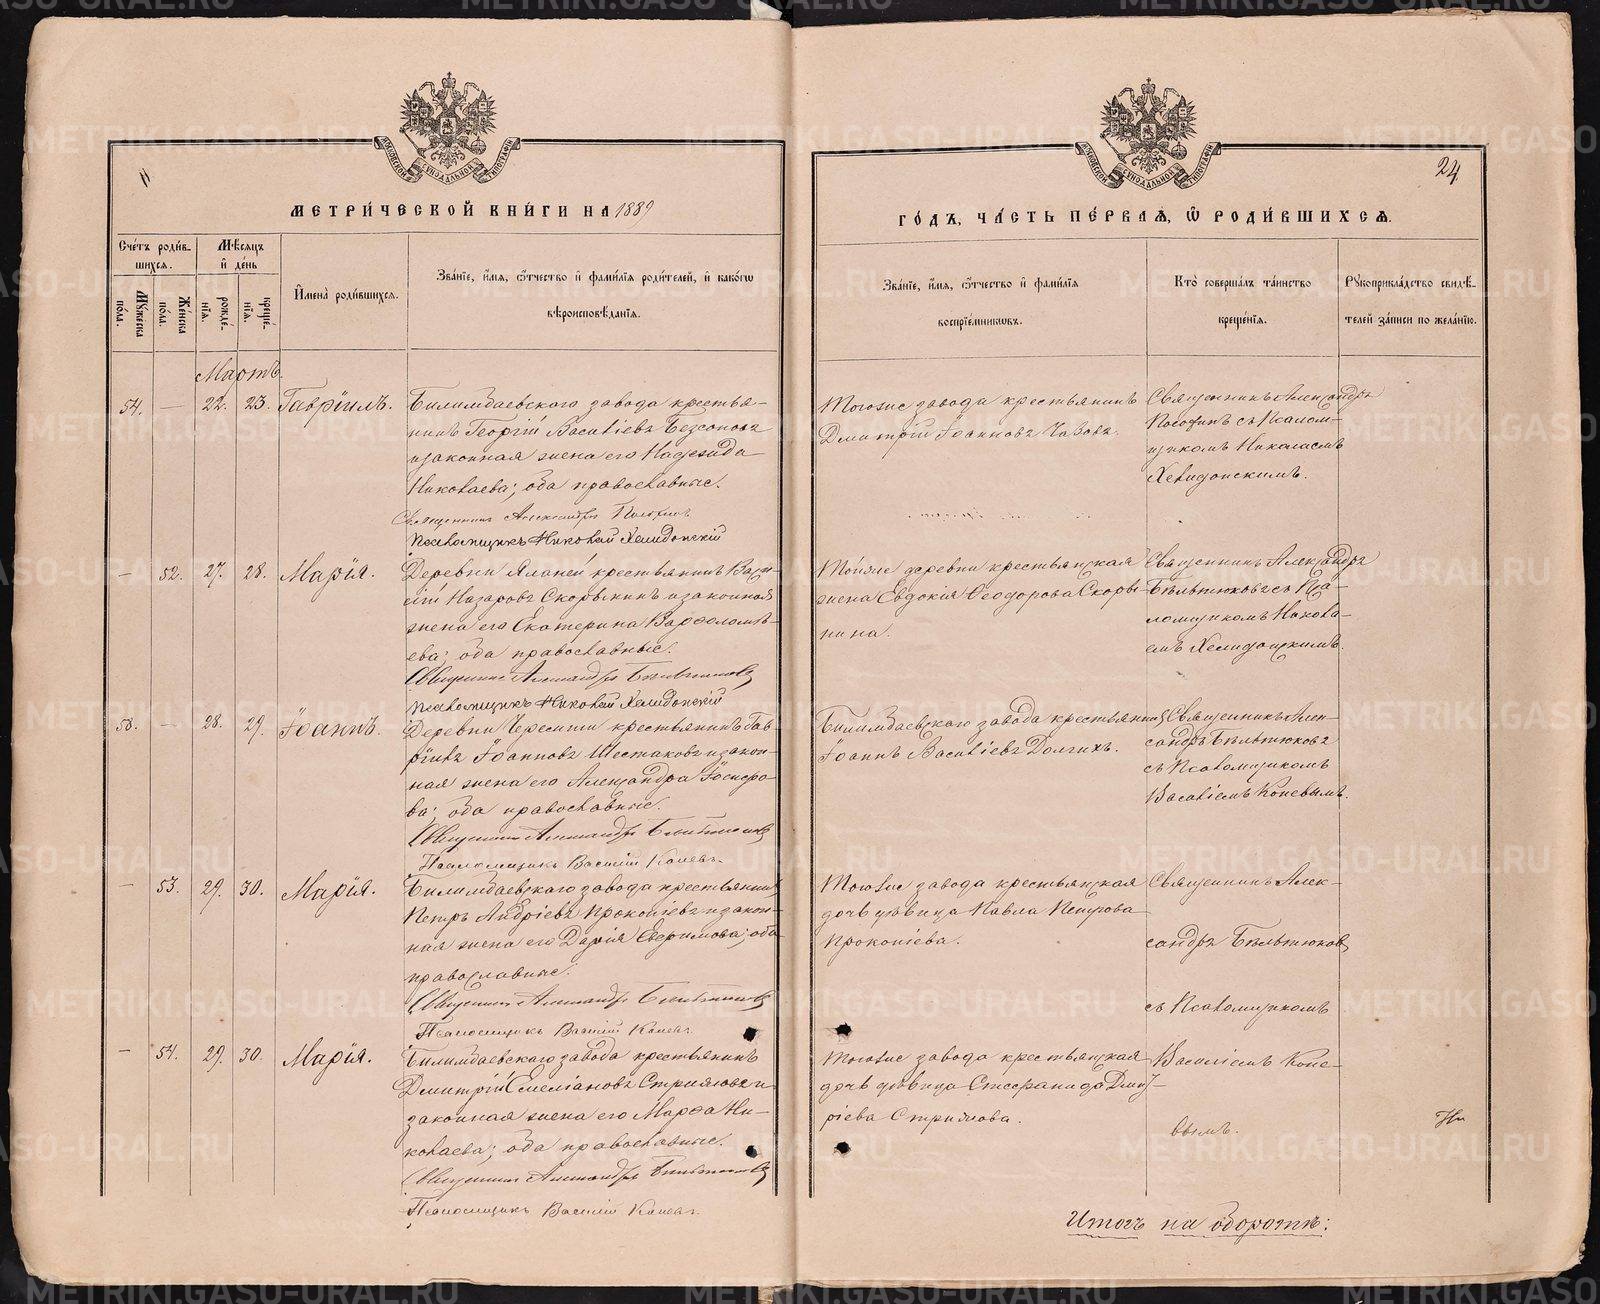 МЕТРИЧЕСКОЙ КНИГИ НА 1889
Счетъ родив-
шихся.
Мѣсяцъ
и день
Мужеска пола.
Женска пола.
рожде-
нія.
креще-
нія.
Имена родившихся.
Званіе, имя, отчество и фамилія родителей, и какогѡ
вѣроисповѣданія.
Мартъ.
54. — 22. 23. Гавріилъ.
Билимбаевскаго завода крестья-
нинъ Георгій Васильевъ Безсоновъ
и законная жена его Надежда
Николаева; оба православные.
Священникъ Александръ
Псаломщикъ Николай Хелидонскій
— 52. 27. 28. Марія.
Деревни крестьянинъ Васи-
лій Назаровъ Скорынинъ и законная
жена его Екатерина Варѳоломѣ-
ева; оба православные.
Священникъ Александръ Бѣльтюковъ
Псаломщикъ Николай Хелидонскій
— 28. 29. Іоаннъ.
Деревни крестьянинъ Гав-
ріилъ Іоанновъ Шестаковъ и закон-
ная жена его Александра Іосифо-
ва; оба православные.
Священникъ Александръ Бѣльтюковъ
Псаломщикъ Василій Коневъ.
— 53. 29. 30. Марія.
Билимбаевскаго завода крестьянинъ
Петръ Андріевъ Прокопіевъ и закон-
ная жена его Дарія Ефримова; оба
православные.
Священникъ Александръ Бѣльтюковъ
Псаломщикъ Василій Коневъ.
— 54. 29. 30. Марія.
Билимбаевскаго завода крестьянинъ
Дмитрій Емеліановъ Стрижовъ и
законная жена его Марѳа Ни-
колаева; оба православные.
Священникъ Александръ Бѣльтюковъ
Псаломщикъ Василій Коневъ.
24
ГОДЪ, ЧАСТЬ ПЕРВАЯ, Ѡ РОДИВШИХСЯ.
Званіе, имя, отчество и фамилія
воспріемниковъ.
Кто совершалъ таинство
крещенія.
Рукоприкладство свидѣ-
телей записи по желанію.
Тогоже завода крестьянинъ
Дмитрій Іоанновъ Чазовъ.
Священникъ Александръ
съ Псалом-
щикомъ Николаемъ
Хелидонскимъ.
Тойже деревни крестьянская
жена Евдокія Ѳеодорова Скоры-
нина.
Священникъ Александръ
Бѣльтюковъ съ Пса-
ломщикомъ Никола-
емъ Хелидонскимъ.
Билимбаевскаго завода крестьянинъ
Іоаннъ Васильевъ Долгихъ.
Священникъ Алек-
сандръ Бѣльтюковъ
съ Псаломщикомъ
Василіемъ Коневымъ.
Тогоже завода крестьянская
дочь дѣвица Павла Петрова
Прокопіева.
Священникъ Алек-
сандръ Бѣльтюковъ
съ Псаломщикомъ
Тогоже завода крестьянская
дочь дѣвица Стефанида Дмит-
ріева Стрижова.
Василіемъ Коне-
вымъ.
Итогъ на оборотѣ:
METRIKI.GASO-URAL.RU